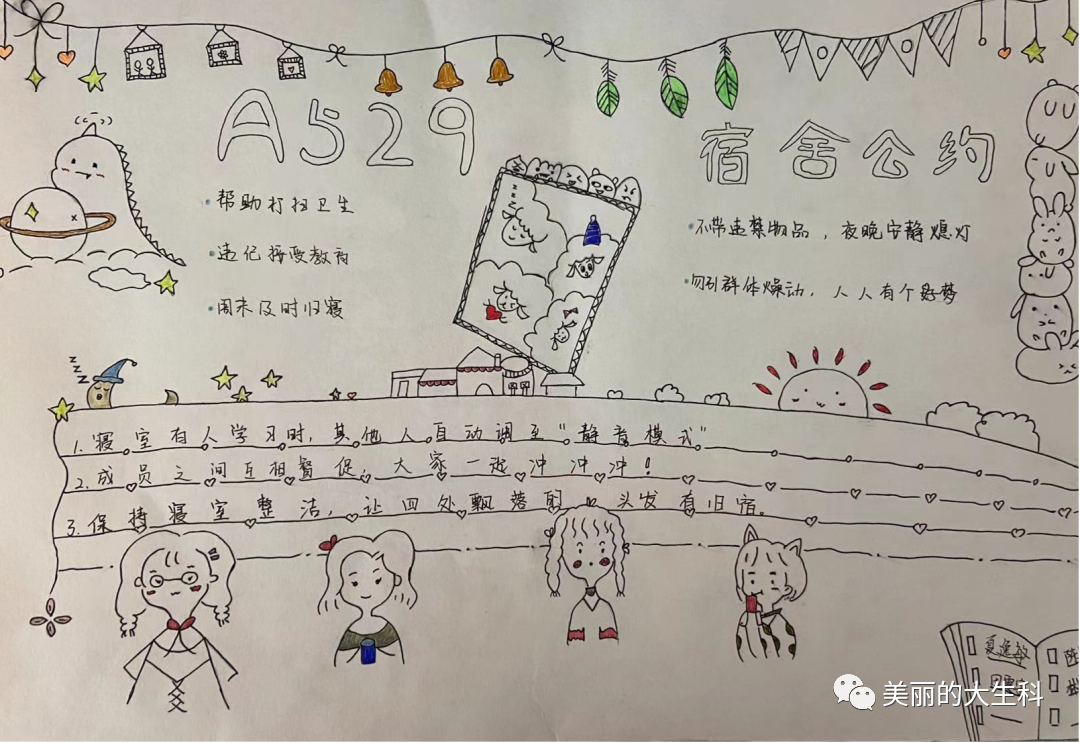 A529
宿舍公约
帮助打扫卫生
违纪接受教育
周末及时归寝
不带违禁物品，夜晚安静熄灯
勿引群体燥动，人人有个好梦
1.寝室有人学习时，其他人自动调至"静音模式"
2.成员之间互相督促，大家一起冲冲冲！
3.保持寝室整洁，让四处飘落的头发有归宿。
z z z
z z z
夏逸敏
美丽的大生科